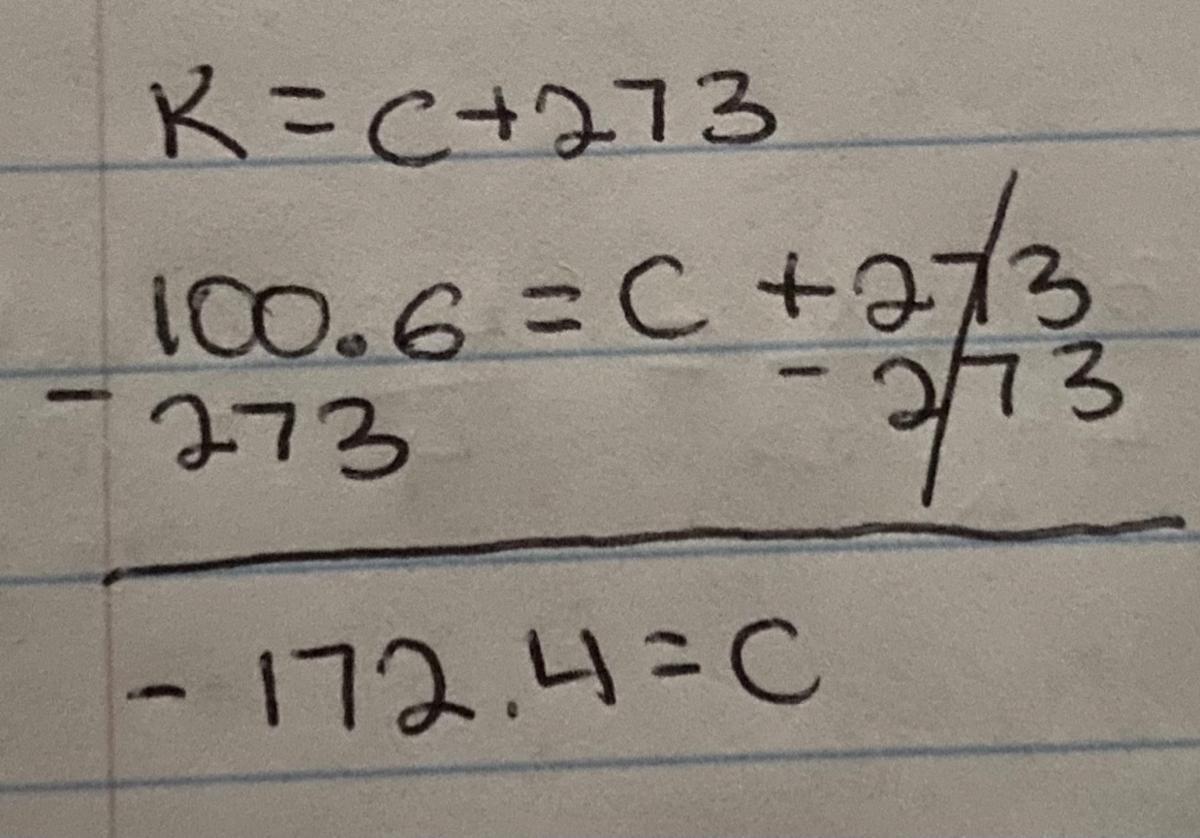 K = C + 273
100.6 = C + 273
- 273 - 273
- 172.4 = C